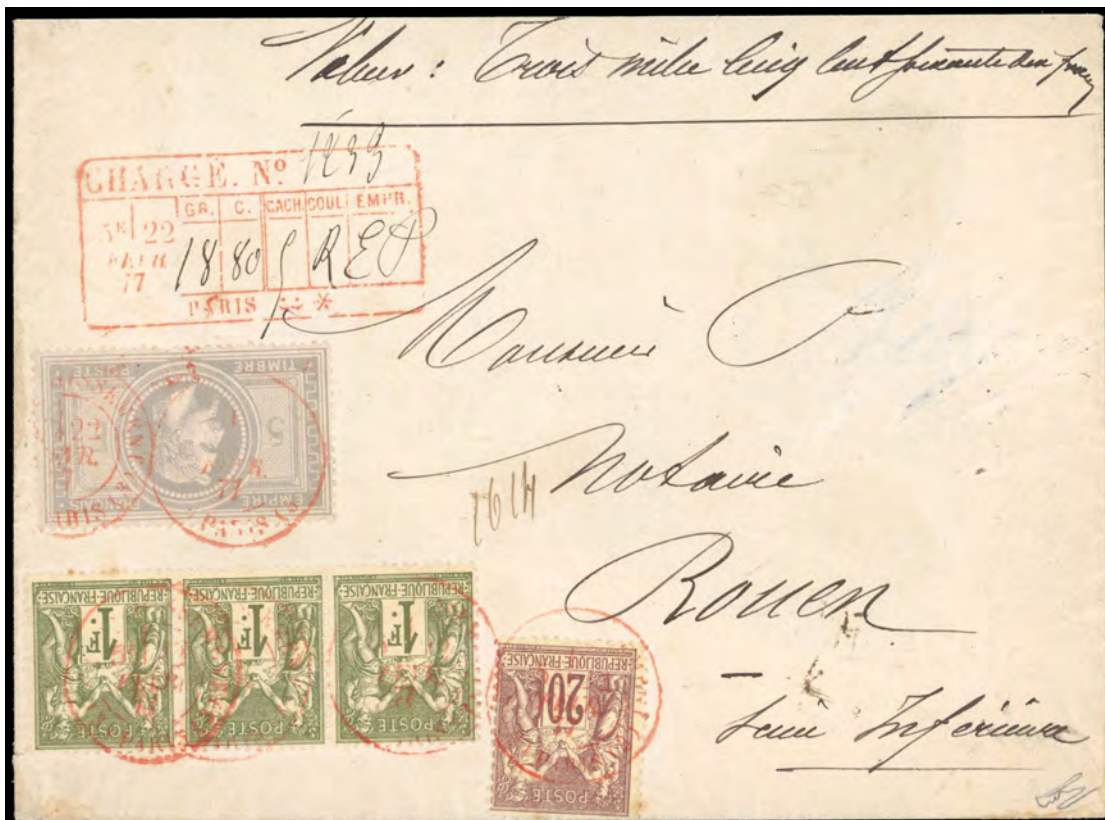 Valeur : Trois mille cinq cent soixante deux francs
CHARGÉ. Nº 1233
GR. C. CACH. COUL. EMPR.
5E 22
FEVR
77
18 80 5 R EP
PARIS
Monsieur P
Notaire
Rouen
Seine Inférieure
1614
TIMBRE POSTE
5
EMPIRE
22
77
PARIS
REPUBLIQUE-FRANÇAISE
1F.
POSTE
REPUBLIQUE-FRANÇAISE
1F.
POSTE
REPUBLIQUE-FRANÇAISE
1F.
POSTE
REPUBLIQUE-FRANÇAISE
20
POSTE